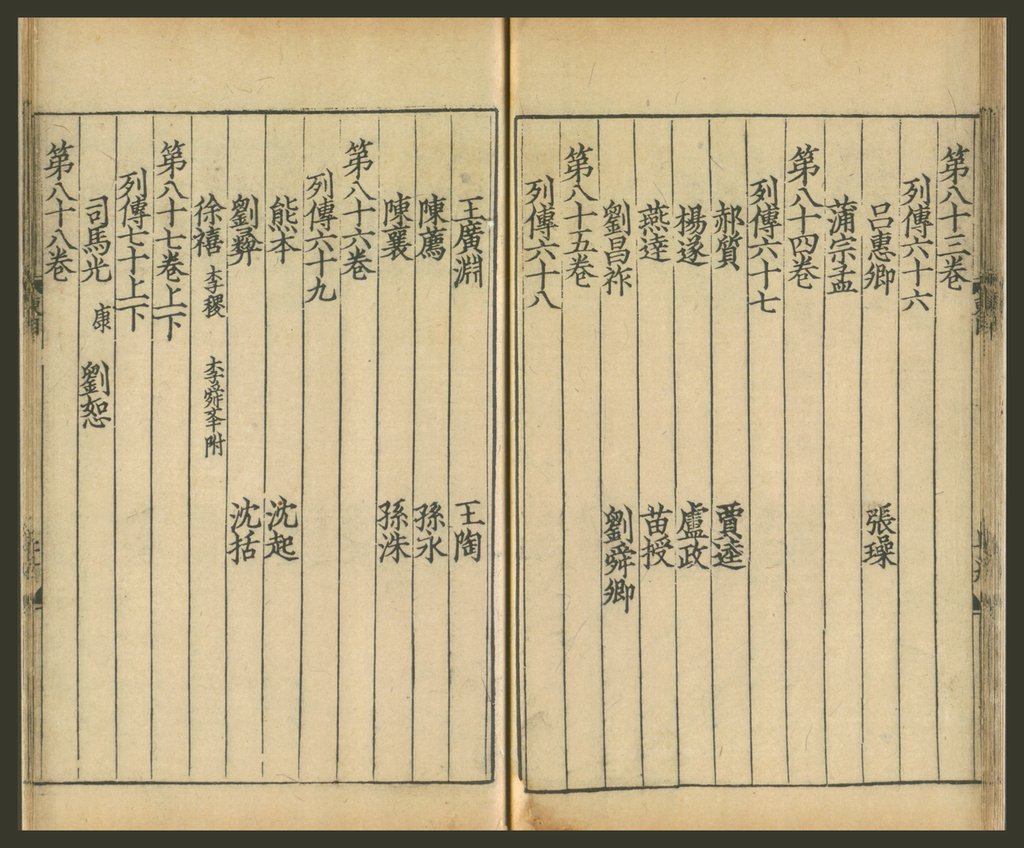 第八十三卷
列傳六十六
呂惠卿 張璪
蒲宗孟
第八十四卷
列傳六十七
郝質 賈逵
楊遂 盧政
燕達 苗授
劉昌祚 劉舜卿
第八十五卷
列傳六十八
王廣淵 王陶
陳薦 孫永
陳襄 孫洙
第八十六卷
列傳六十九
熊本 沈起
劉彝 沈括
徐禧 李稷 李舜舉附
第八十七卷上下
列傳七十上下
司馬光 康 劉恕
第八十八卷